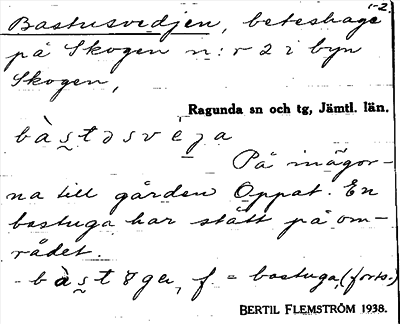 1-2.
Bastusvedjen, beteshage
på Skogen n:r 2 i byn
Skogen,
Ragunda sn och tg, Jämtl. län.
bàs̰təsvḛja
På inägor-
na till gården Oppat. En
bastuga har stått på om-
rådet.
bàs̰t8ga, f = bastuga, (forts.)
BERTIL FLEMSTRÖM 1938.